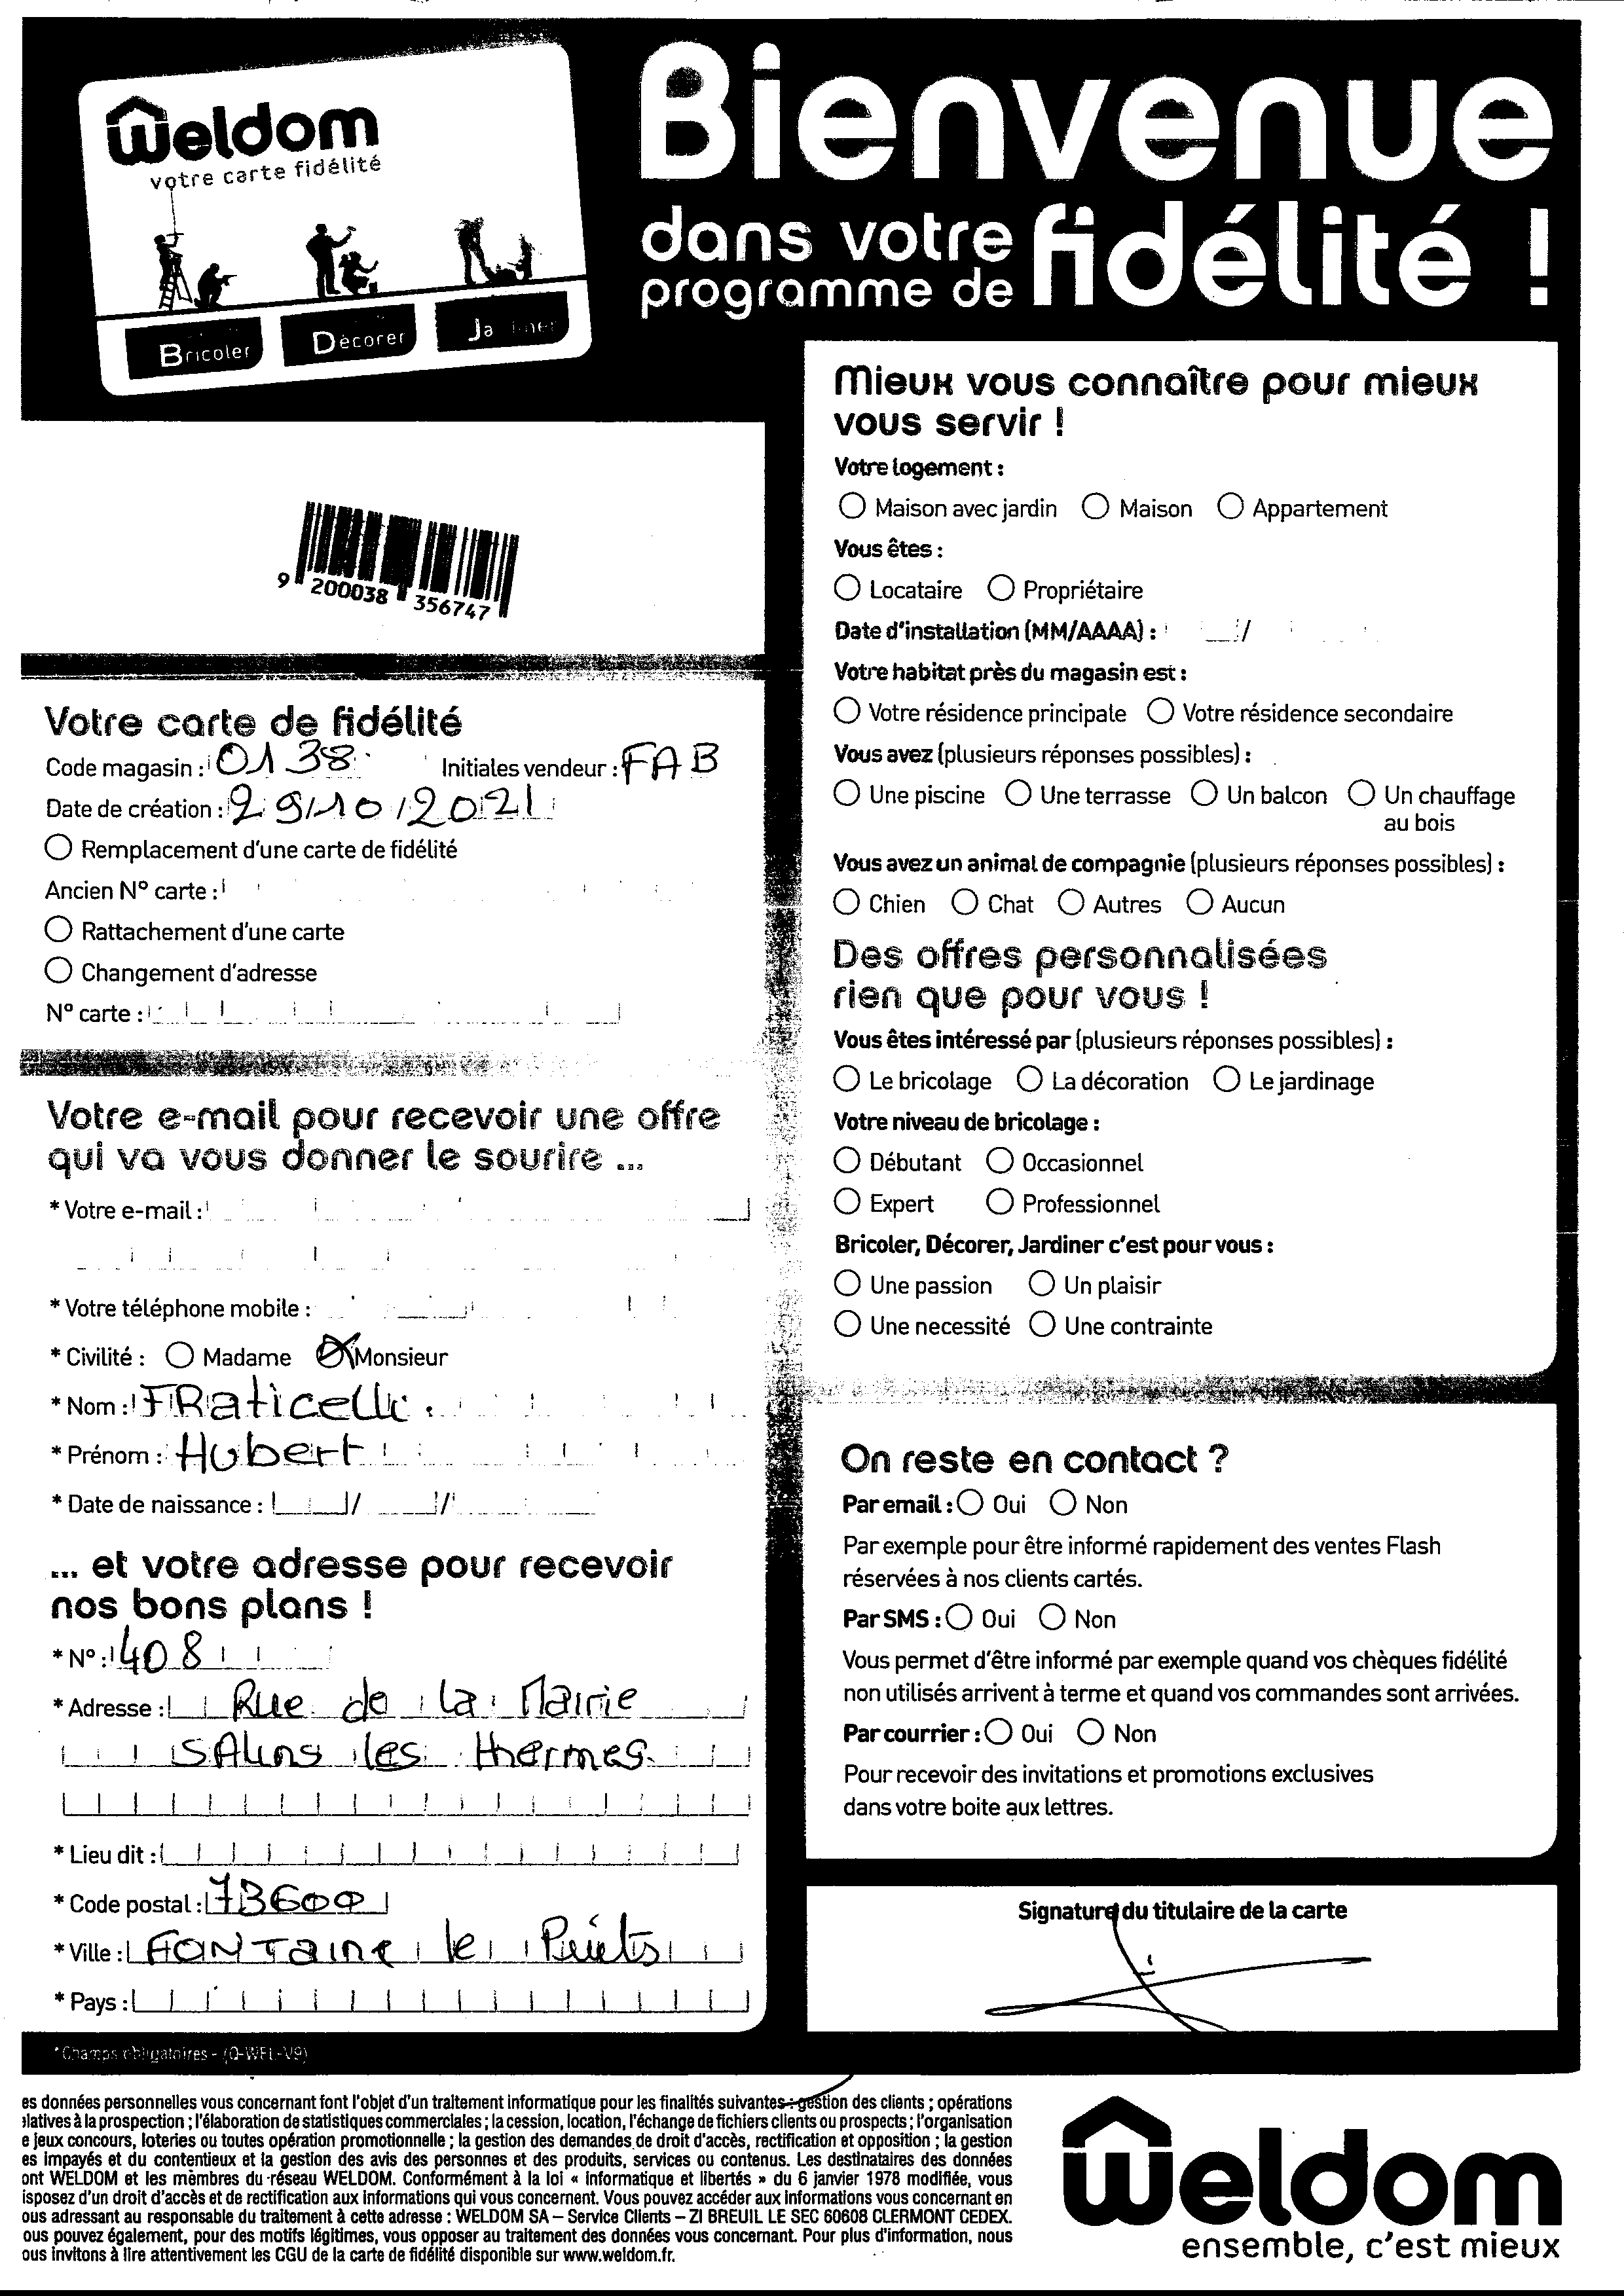 Weldom
votre carte fidélité
Bricoler
Décorer
Bienvenue
dans votre
programme de fidélité !
9 200038 356747
Votre carte de fidélité
Code magasin : 0138
Initiales vendeur : FAB
Date de création : 29/10/2021
Remplacement d'une carte de fidélité
Ancien N° carte :
Rattachement d'une carte
Changement d'adresse
N° carte :
Votre e-mail pour recevoir une offre
qui va vous donner le sourire ...
* Votre e-mail :
* Votre téléphone mobile :
* Civilité : Madame Monsieur
* Nom : FRaticelli
* Prénom : Hubert
* Date de naissance : / /
... et votre adresse pour recevoir
nos bons plans !
* N° : 408
* Adresse : Rue de la Mairie
SAlins les thermes
* Lieu dit :
* Code postal : 73600
* Ville : FONTaine le Puits
* Pays :
* Champs obligatoires - (Q-WEL-V9)
Mieux vous connaître pour mieux
vous servir !
Votre logement :
Maison avec jardin Maison Appartement
Vous êtes :
Locataire Propriétaire
Date d'installation (MM/AAAA) : /
Votre habitat près du magasin est :
Votre résidence principale Votre résidence secondaire
Vous avez (plusieurs réponses possibles) :
Une piscine Une terrasse Un balcon Un chauffage
au bois
Vous avez un animal de compagnie (plusieurs réponses possibles) :
Chien Chat Autres Aucun
Des offres personnalisées
rien que pour vous !
Vous êtes intéressé par (plusieurs réponses possibles) :
Le bricolage La décoration Le jardinage
Votre niveau de bricolage :
Débutant Occasionnel
Expert Professionnel
Bricoler, Décorer, Jardiner c'est pour vous :
Une passion Un plaisir
Une necessité Une contrainte
On reste en contact ?
Par email : Oui Non
Par exemple pour être informé rapidement des ventes Flash
réservées à nos clients cartés.
Par SMS : Oui Non
Vous permet d'être informé par exemple quand vos chèques fidélité
non utilisés arrivent à terme et quand vos commandes sont arrivées.
Par courrier : Oui Non
Pour recevoir des invitations et promotions exclusives
dans votre boite aux lettres.
Signature du titulaire de la carte
es données personnelles vous concernant font l'objet d'un traitement informatique pour les finalités suivantes : gestion des clients ; opérations
latives à la prospection ; l'élaboration de statistiques commerciales ; la cession, location, l'échange de fichiers clients ou prospects ; l'organisation
e jeux concours, loteries ou toutes opération promotionnelle ; la gestion des demandes de droit d'accès, rectification et opposition ; la gestion
es impayés et du contentieux et la gestion des avis des personnes et des produits, services ou contenus. Les destinataires des données
ont WELDOM et les mêmbres du réseau WELDOM. Conformément à la loi « informatique et libertés » du 6 janvier 1978 modifiée, vous
isposez d'un droit d'accès et de rectification aux informations qui vous concernent. Vous pouvez accéder aux informations vous concernant en
ous adressant au responsable du traitement à cette adresse : WELDOM SA – Service Clients – ZI BREUIL LE SEC 60608 CLERMONT CEDEX.
ous pouvez également, pour des motifs légitimes, vous opposer au traitement des données vous concernant. Pour plus d'information, nous
ous invitons à lire attentivement les CGU de la carte de fidélité disponible sur www.weldom.fr.
Weldom
ensemble, c'est mieux